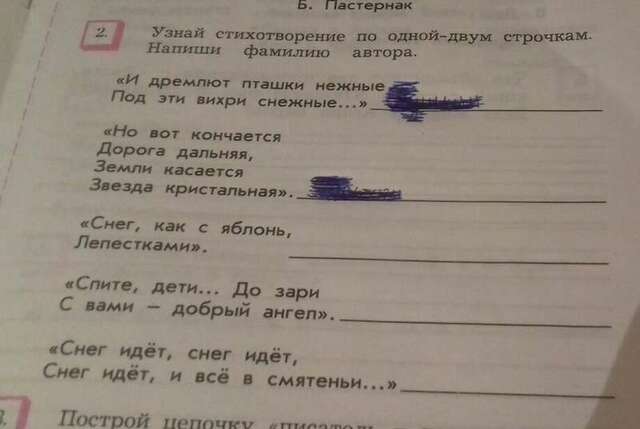 Б. Пастернак
2. Узнай стихотворение по одной-двум строчкам.
Напиши фамилию автора.
«И дремлют пташки нежные
Под эти вихри снежные...»
«Но вот кончается
Дорога дальняя,
Земли касается
Звезда кристальная».
«Снег, как с яблонь,
Лепестками».
«Спите, дети... До зари
С вами – добрый ангел».
«Снег идёт, снег идёт,
Снег идёт, и всё в смятеньи...»
3. Построй цепочку «писатель